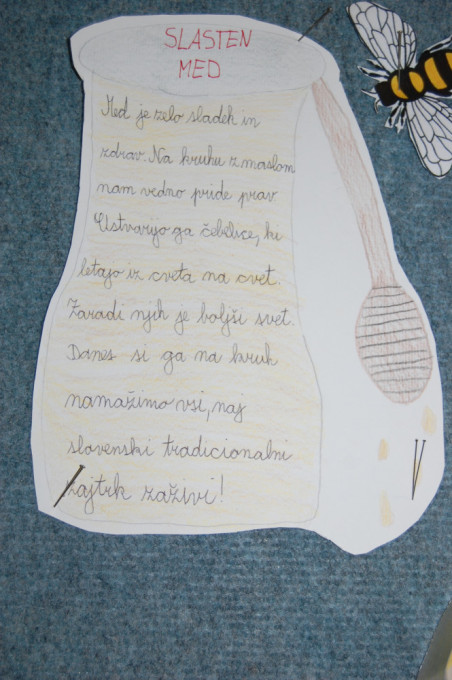 SLASTEN
MED
Med je zelo sladek in
zdrav. Na kruhu z maslom
nam vedno pride prav
Ustvarijo ga čebelice, ki
letajo iz cveta na cvet.
Zaradi njih je boljši svet.
Danes si ga na kruh
namažimo vsi, naj
slovenski tradicionalni
zajtrk zaživi!